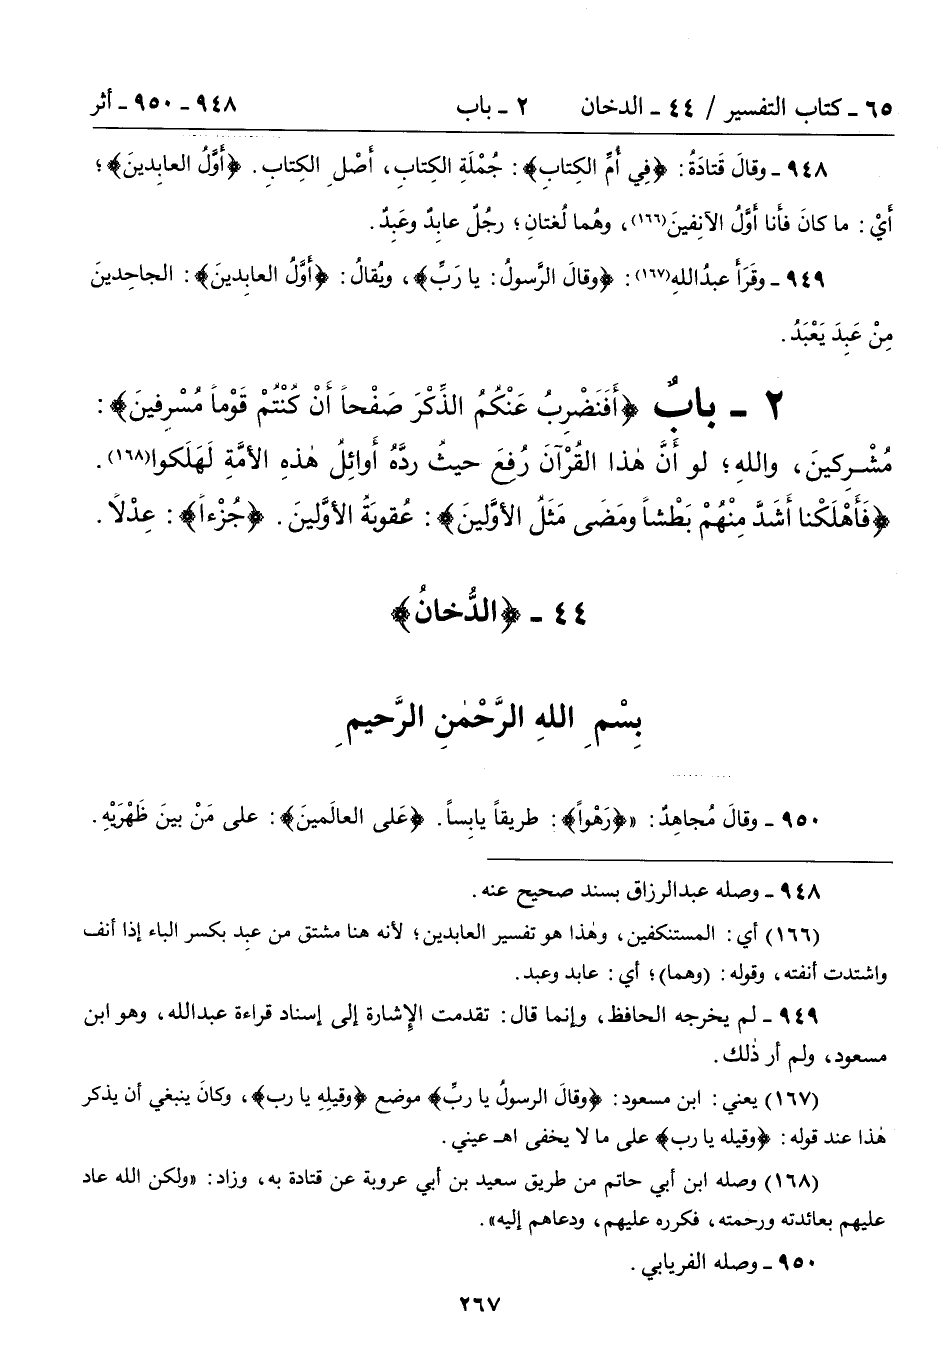 ٦٥ ـ كتاب التفسير / ٤٤ ـ الدخان ٢ ـ باب ٩٤٨ ـ ٩٥٠ ـ أثر
٩٤٨ ـ وقالَ قَتادَةُ: ﴿فِي أُمِّ الكِتابِ﴾: جُمْلَةِ الكِتابِ، أَصْلِ الكِتابِ. ﴿أَوَّلُ العابِدينَ﴾؛
أَيْ: ما كانَ فَأَنا أَوَّلُ الآنِفينَ(١٦٦)، وهُما لُغتانِ؛ رجُلٌ عابِدٌ وعَبِدٌ.
٩٤٩ ـ وقَرَأَ عبدُالله(١٦٧): ﴿وقالَ الرَّسولُ: يا رَبِّ﴾، ويُقالُ: ﴿أَوَّلُ العابِدينَ﴾: الجاحِدينَ
مِنْ عَبِدَ يَعْبَدُ.
٢ ـ بابٌ ﴿أَفَنَضْرِبُ عَنْكُمُ الذِّكْرَ صَفْحاً أَنْ كُنْتُمْ قَوْماً مُسْرِفينَ﴾:
مُشْرِكينَ، واللهِ؛ لو أَنَّ هٰذا القُرْآنَ رُفِعَ حيثُ ردَّهُ أَوائِلُ هٰذهِ الأمَّةِ لَهَلَكوا(١٦٨).
﴿فَأَهْلَكْنا أَشَدَّ مِنْهُمْ بَطْشاً ومَضَى مَثَلُ الأوَّلينَ﴾: عُقوبَةُ الأوَّلينَ. ﴿جُزْءاً﴾: عِدْلاً.
٤٤ ـ ﴿الدُّخانُ﴾
بِسْمِ اللهِ الرَّحْمٰنِ الرَّحيمِ
٩٥٠ ـ وقالَ مُجاهِدٌ: «﴿رَهْواً﴾: طريقاً يابِساً. ﴿عَلى العالَمينَ﴾: على مَنْ بينَ ظَهْرَيْهِ.
٩٤٨ ـ وصله عبدالرزاق بسند صحيح عنه.
(١٦٦) أي: المستنكفين، وهٰذا هو تفسير العابدين؛ لأنه هنا مشتق من عبِد بكسر الباء إذا أنف
واشتدت أنفته، وقوله: (وهما)؛ أي: عابد وعبد.
٩٤٩ ـ لم يخرجه الحافظ، وإنما قال: تقدمت الإشارة إلى إسناد قراءة عبدالله، وهو ابن
مسعود، ولم أر ذٰلك.
(١٦٧) يعني: ابن مسعود: ﴿وقالَ الرسولُ يا ربِّ﴾ موضع ﴿وقيلِهِ يا رب﴾، وكانَ ينبغي أن يذكر
هٰذا عند قوله: ﴿وقيله يا رب﴾ على ما لا يخفى اهـ عيني.
(١٦٨) وصله ابن أبي حاتم من طريق سعيد بن أبي عروبة عن قتادة به، وزاد: «ولكن الله عاد
عليهم بعائدته ورحمته، فكرره عليهم، ودعاهم إليه».
٩٥٠ ـ وصله الفريابي.
٢٦٧